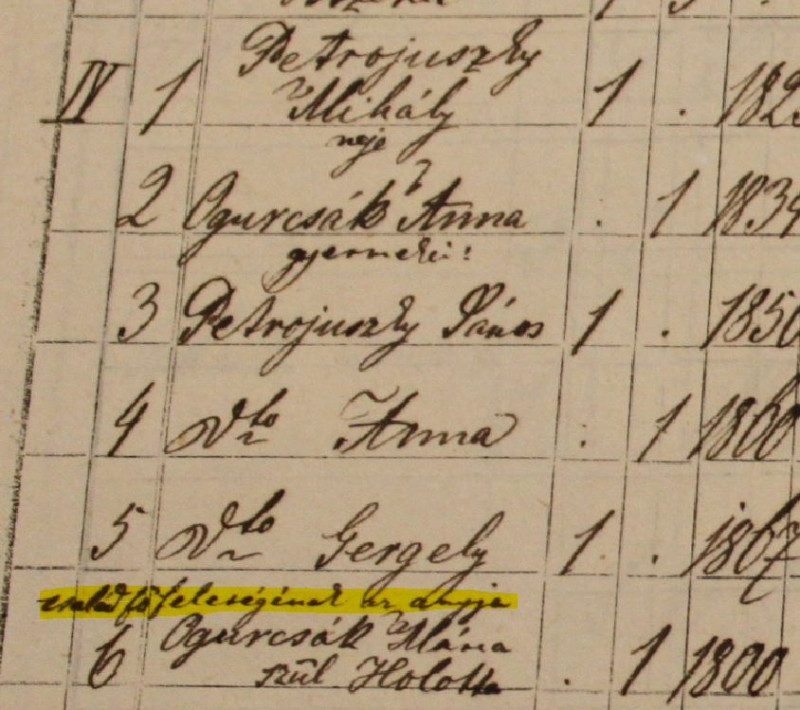 Petrojuszky
IV 1 Mihály 1 . 182
neje
2 Ogurcsák Anna . 1 1834
gyermekei:
3 Petrojuszky János 1 . 1850
4 dto Anna . 1 1860
5 dto Gergely 1 . 1867
családfő feleségének az anyja
Ogurcsák Mária
6 szül Holotta . 1 1800